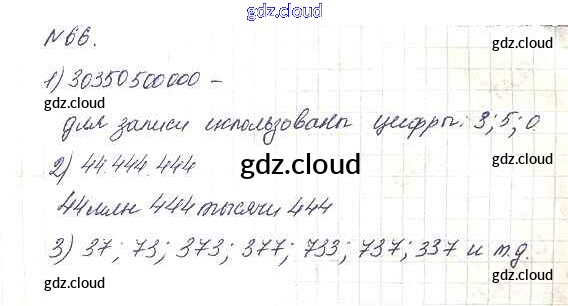 gdz.cloud
№66.
gdz.cloud
1) 30350500000 -
gdz.cloud
gdz.cloud
для записи использованы цифры: 3; 5; 0
2) 44.444.444
gdz.cloud
gdz.cloud
gdz.cloud
44 млн 444 тысячи 444
3) 37; 73; 373; 377; 733; 737; 337 и т.д.
gdz.cloud
gdz.cloud